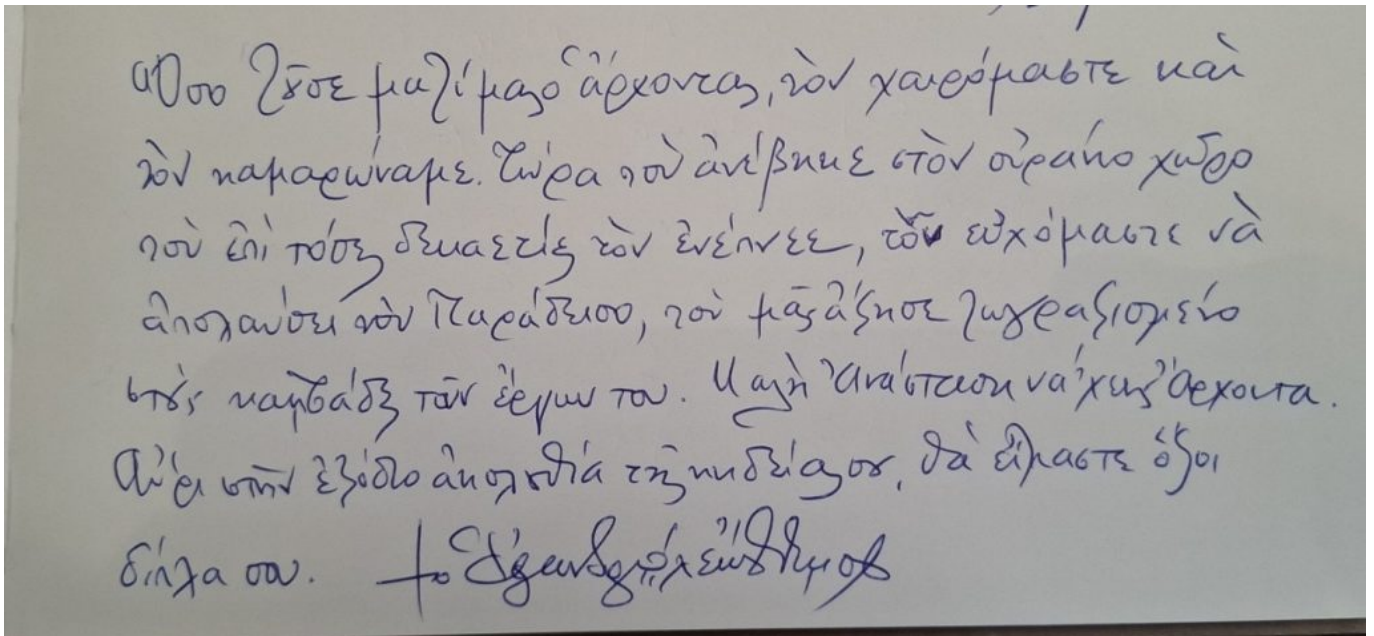 Ὅσο ζοῦσε μαζί μας ὁ ἄρχοντας, τὸν χαιρόμαστε καὶ
τὸν καμαρώναμε. Τώρα ποὺ ἀνέβηκε στὸν οὐράνιο χῶρο
ποὺ ἐπὶ τόσες δεκαετίες τὸν ἐνέπνεε, τοῦ εὐχόμαστε νὰ
ἀπολαύσει τὸν Παράδεισο, ποὺ μᾶς ἄφησε ζωγραφισμένο
στὸς καμβάδες τῶν ἔργων του. Καλὴ Ἀνάσταση νά 'χεις Ἄρχοντα.
Αὔριο στὴν ἐξόδιο ἀκολουθία τῆς κηδείας σου, θὰ εἴμαστε ὅλοι
δίπλα σου. † ὁ Ἀλεξανδρουπόλεως Ἄνθιμος